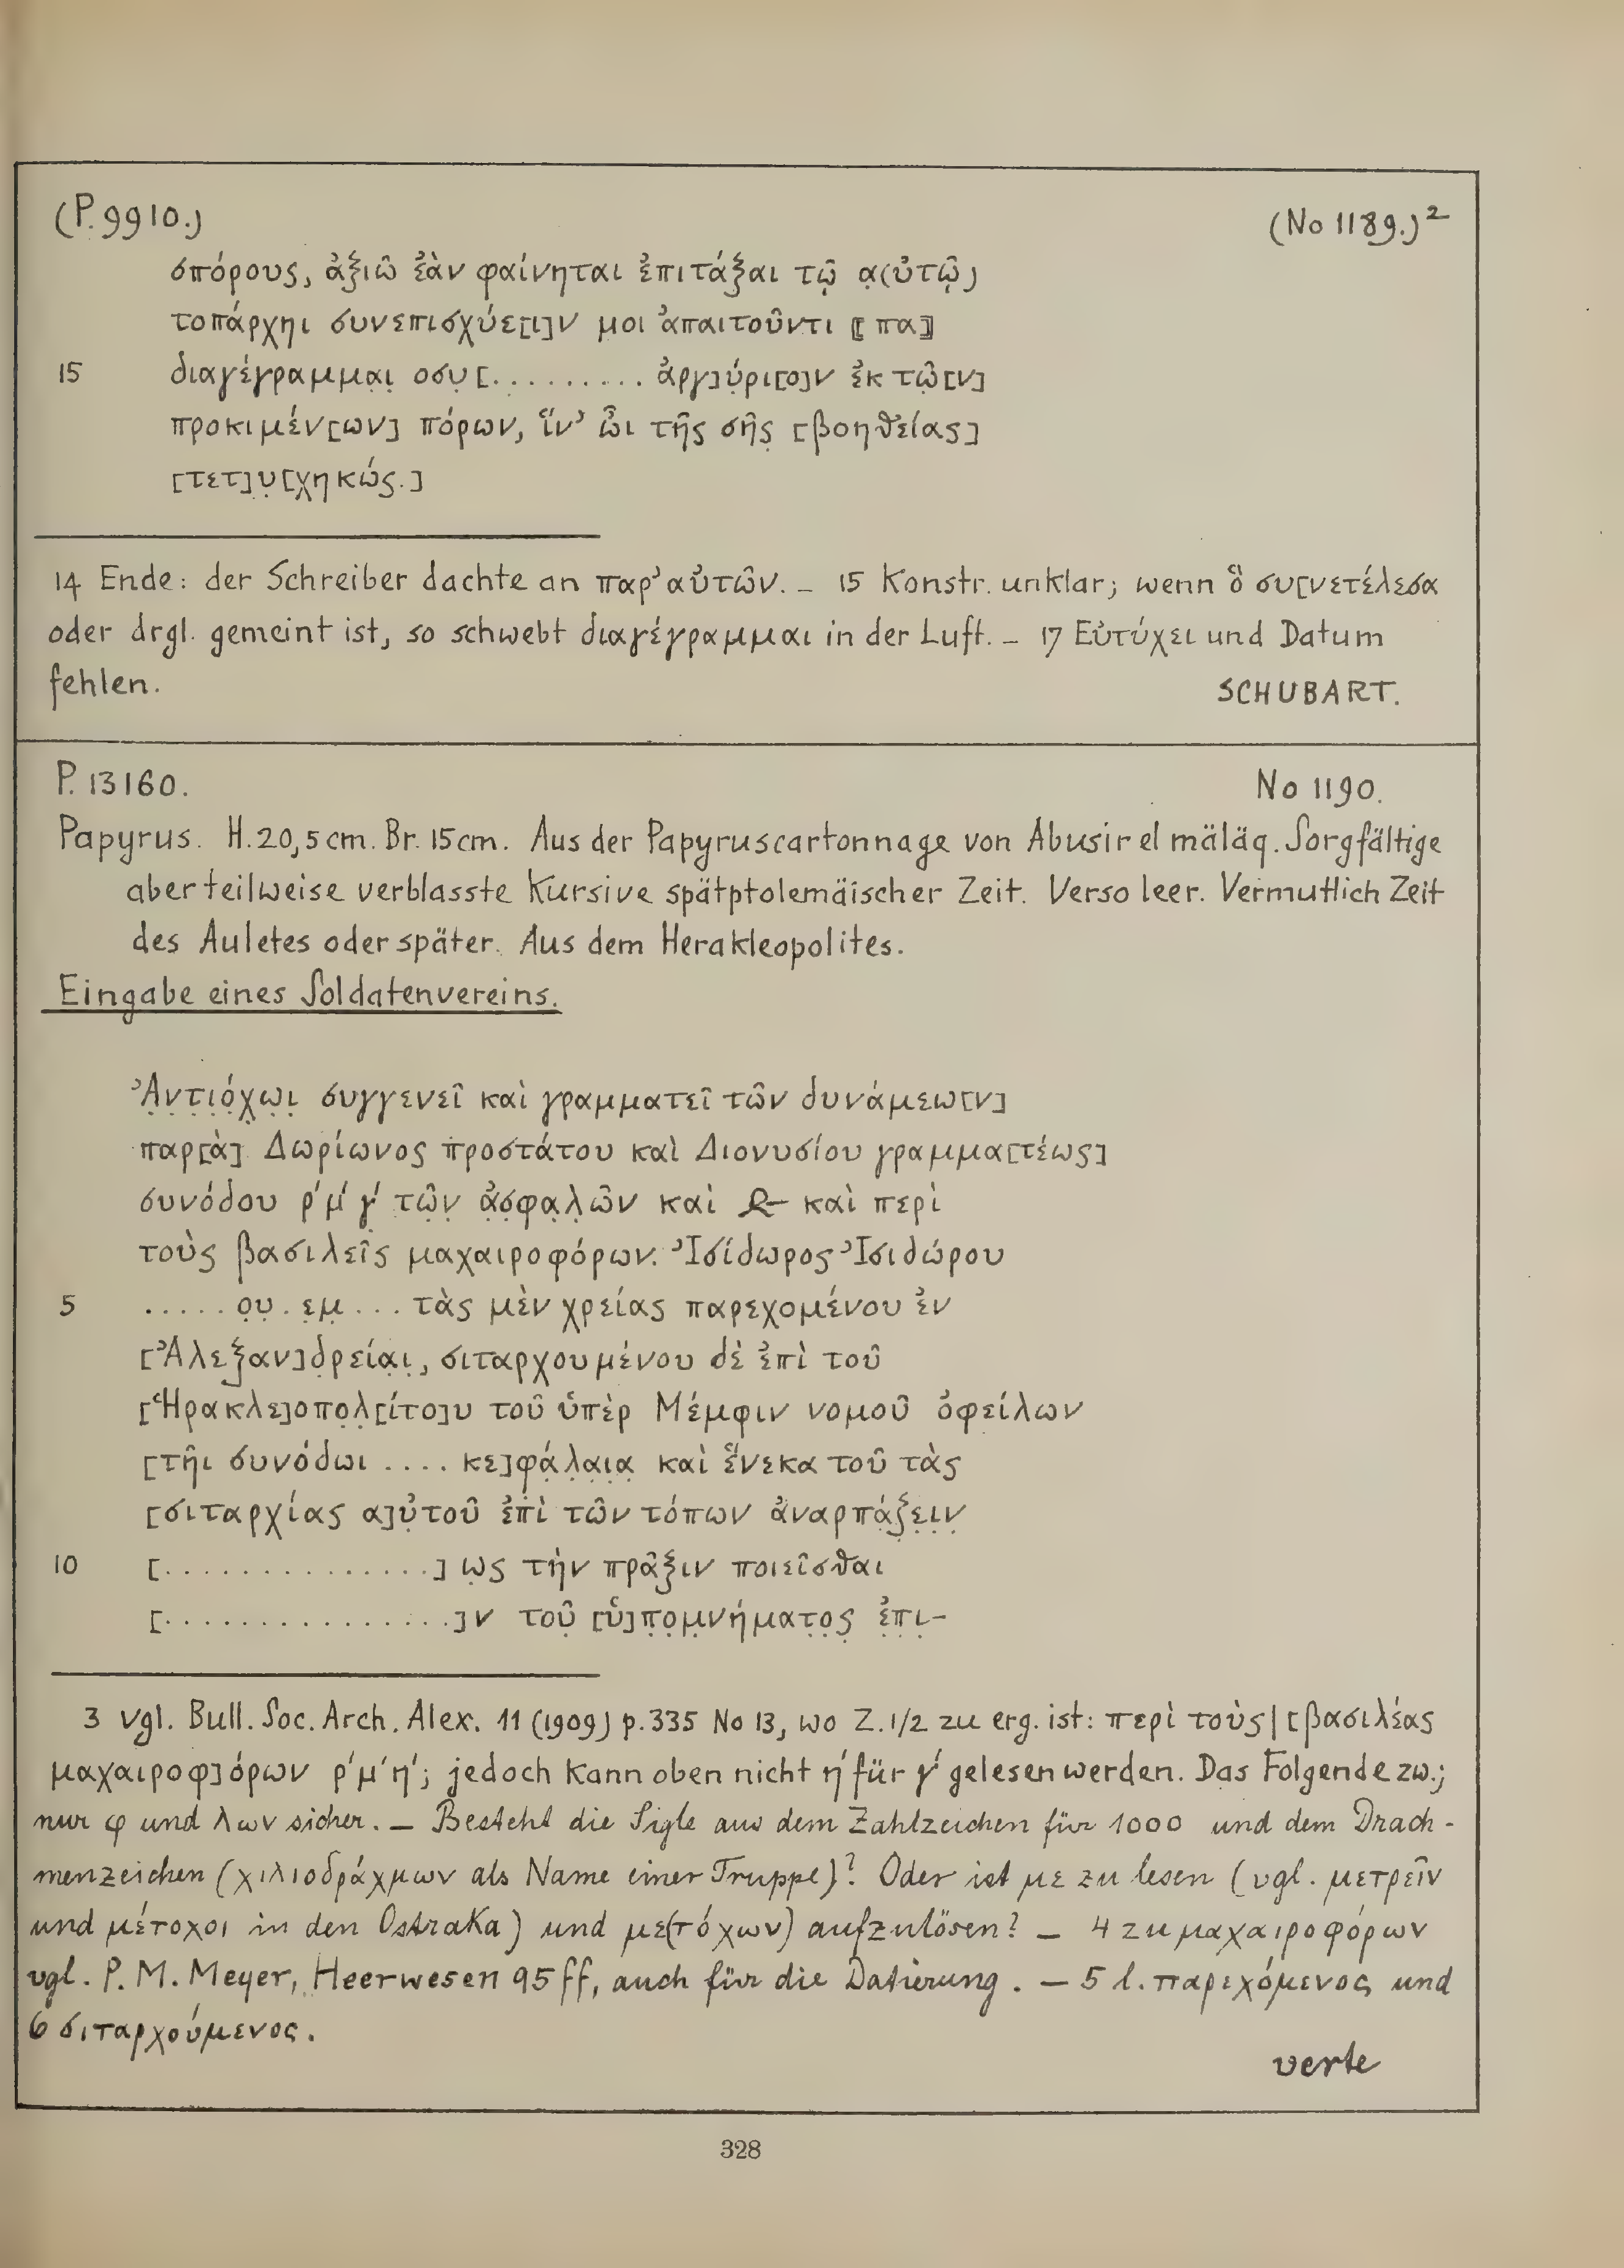 (P. 9910.) (No 1189.)²
σπόρους, ἀξιῶ ἐὰν φαίνηται ἐπιτάξαι τῷ α̣(ὐτῷ)
τοπάρχηι συνεπισχύε[ι]ν μοι ἀπαιτοῦντι ⟦πα⟧
15 διαγέγραμμα̣ι̣ οσυ̣[......... ἀργ]ύ̣ρι[ο]ν ἐκ τῶ̣[ν]
προκιμέν[ων] πόρων, ἵν' ὦι τῆς σῆς̣ [βοηθείας]
[τετ]υ̣[χηκώς.]
14 Ende: der Schreiber dachte an παρ' αὐτῶν. – 15 Konstr. unklar; wenn ὃ συ[νετέλεσα
oder drgl. gemeint ist, so schwebt διαγέγραμμαι in der Luft. – 17 Εὐτύχει und Datum
fehlen. SCHUBART.
P. 13160. No 1190.
Papyrus. H. 20,5 cm. Br. 15 cm. Aus der Papyruscartonnage von Abusir el mäläq. Sorgfältige
aber teilweise verblasste Kursive spätptolemäischer Zeit. Verso leer. Vermutlich Zeit
des Auletes oder später. Aus dem Herakleopolites.
Eingabe eines Soldatenvereins.
Ἀ̣ν̣τ̣ι̣ό̣χ̣ω̣ι̣ συγγενεῖ καὶ γραμματεῖ τῶν δυνάμεω[ν]
παρ[ὰ] Δωρίωνος προστάτου καὶ Διονυσίου γραμμα[τέως]
συνόδου ρ´μ´γ´ τῶ̣ν̣ ἀ̣σ̣φα̣λ̣ῶν καὶ καὶ περὶ
τοὺς βασιλεῖς μαχαιροφόρων. Ἰσίδωρος Ἰσιδώρου
5 ..... ο̣υ̣ . ε̣μ̣ ... τὰς μὲν χρείας παρεχομένου ἐν
[Ἀλεξαν]δ̣ρεία̣ι̣, σιταρχουμένου δὲ ἐπὶ τοῦ
[Ἡρακλε]οπο̣λ̣[ίτο]υ τοῦ ὑπὲρ Μέμφιν νομοῦ ὀφείλων
[τῆι συνόδωι .... κε]φ̣ά̣λ̣α̣ι̣α̣ καὶ ἕνεκα τοῦ τὰς
[σιταρχίας α]ὐ̣τοῦ ἐπὶ τῶν τόπων ἀναρπά̣ξ̣ε̣ι̣ν̣
10 [..............] ω̣ς τὴν πρᾶξιν ποιεῖσθαι
[...............]ν τοῦ̣ [ὑ]π̣ο̣μ̣νήματο̣ς̣ ἐ̣π̣ι̣-
3 vgl. Bull. Soc. Arch. Alex. 11 (1909) p. 335 No 13, wo Z. 1/2 zu erg. ist: περὶ τοὺς | [βασιλέας
μαχαιροφ]όρων ρ´μ´η´; jedoch kann oben nicht η´ für γ´ gelesen werden. Das Folgende zw.;
nur φ und λων sicher. – Besteht die Sigle aus dem Zahlzeichen für 1000 und dem Drach-
menzeichen (χιλιοδράχμων als Name einer Truppe)? Oder ist με zu lesen (vgl. μετρεῖν
und μέτοχοι in den Ostraka) und με(τόχων) aufzulösen? – 4 zu μαχαιροφόρων
vgl. P. M. Meyer, Heerwesen 95 ff, auch für die Datierung. – 5 l. παρεχόμενος und
6 σιταρχούμενος.
verte
328